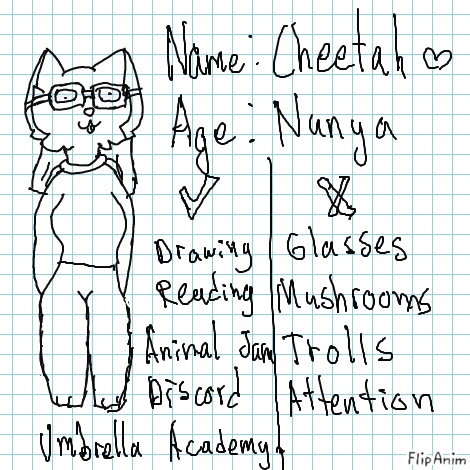 Name: Cheetah ♡
Age: Nunya
Drawing
Reading
Animal Jam
Discord
Umbrella Academy
Glasses
Mushrooms
Trolls
Attention
FlipAnim